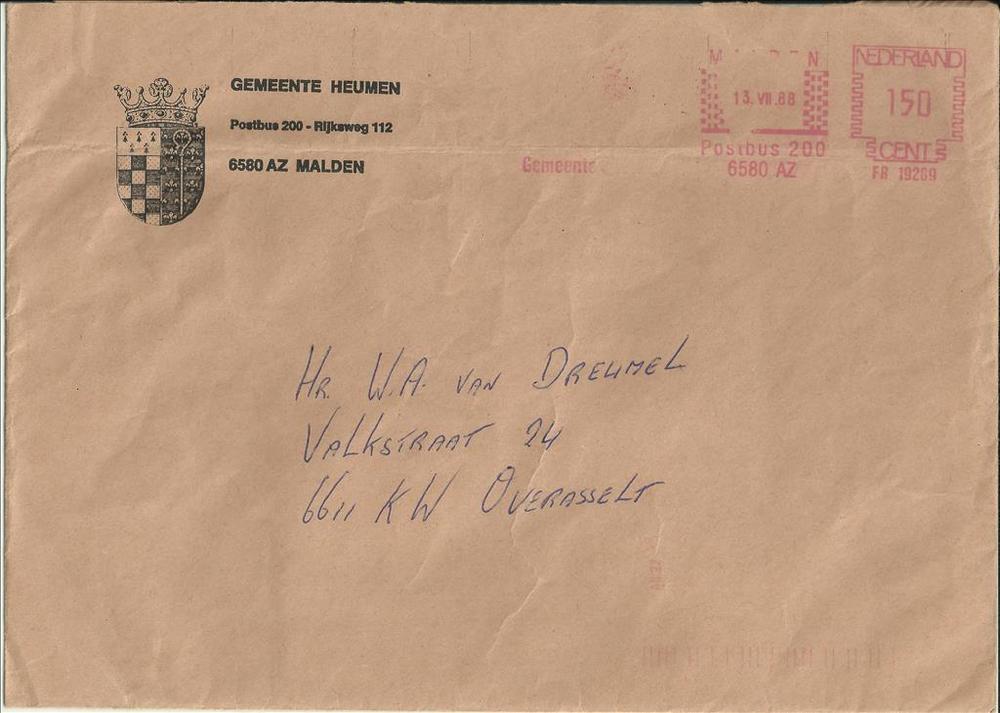 GEMEENTE HEUMEN
Postbus 200 - Rijksweg 112
6580 AZ MALDEN
Gemeente
13. VII.88
Postbus 200
6580 AZ
NEDERLAND
150
CENT
FR 19269
Hr. W.A. van Dreumel
Valkstraat 24
6611 KW Overasselt